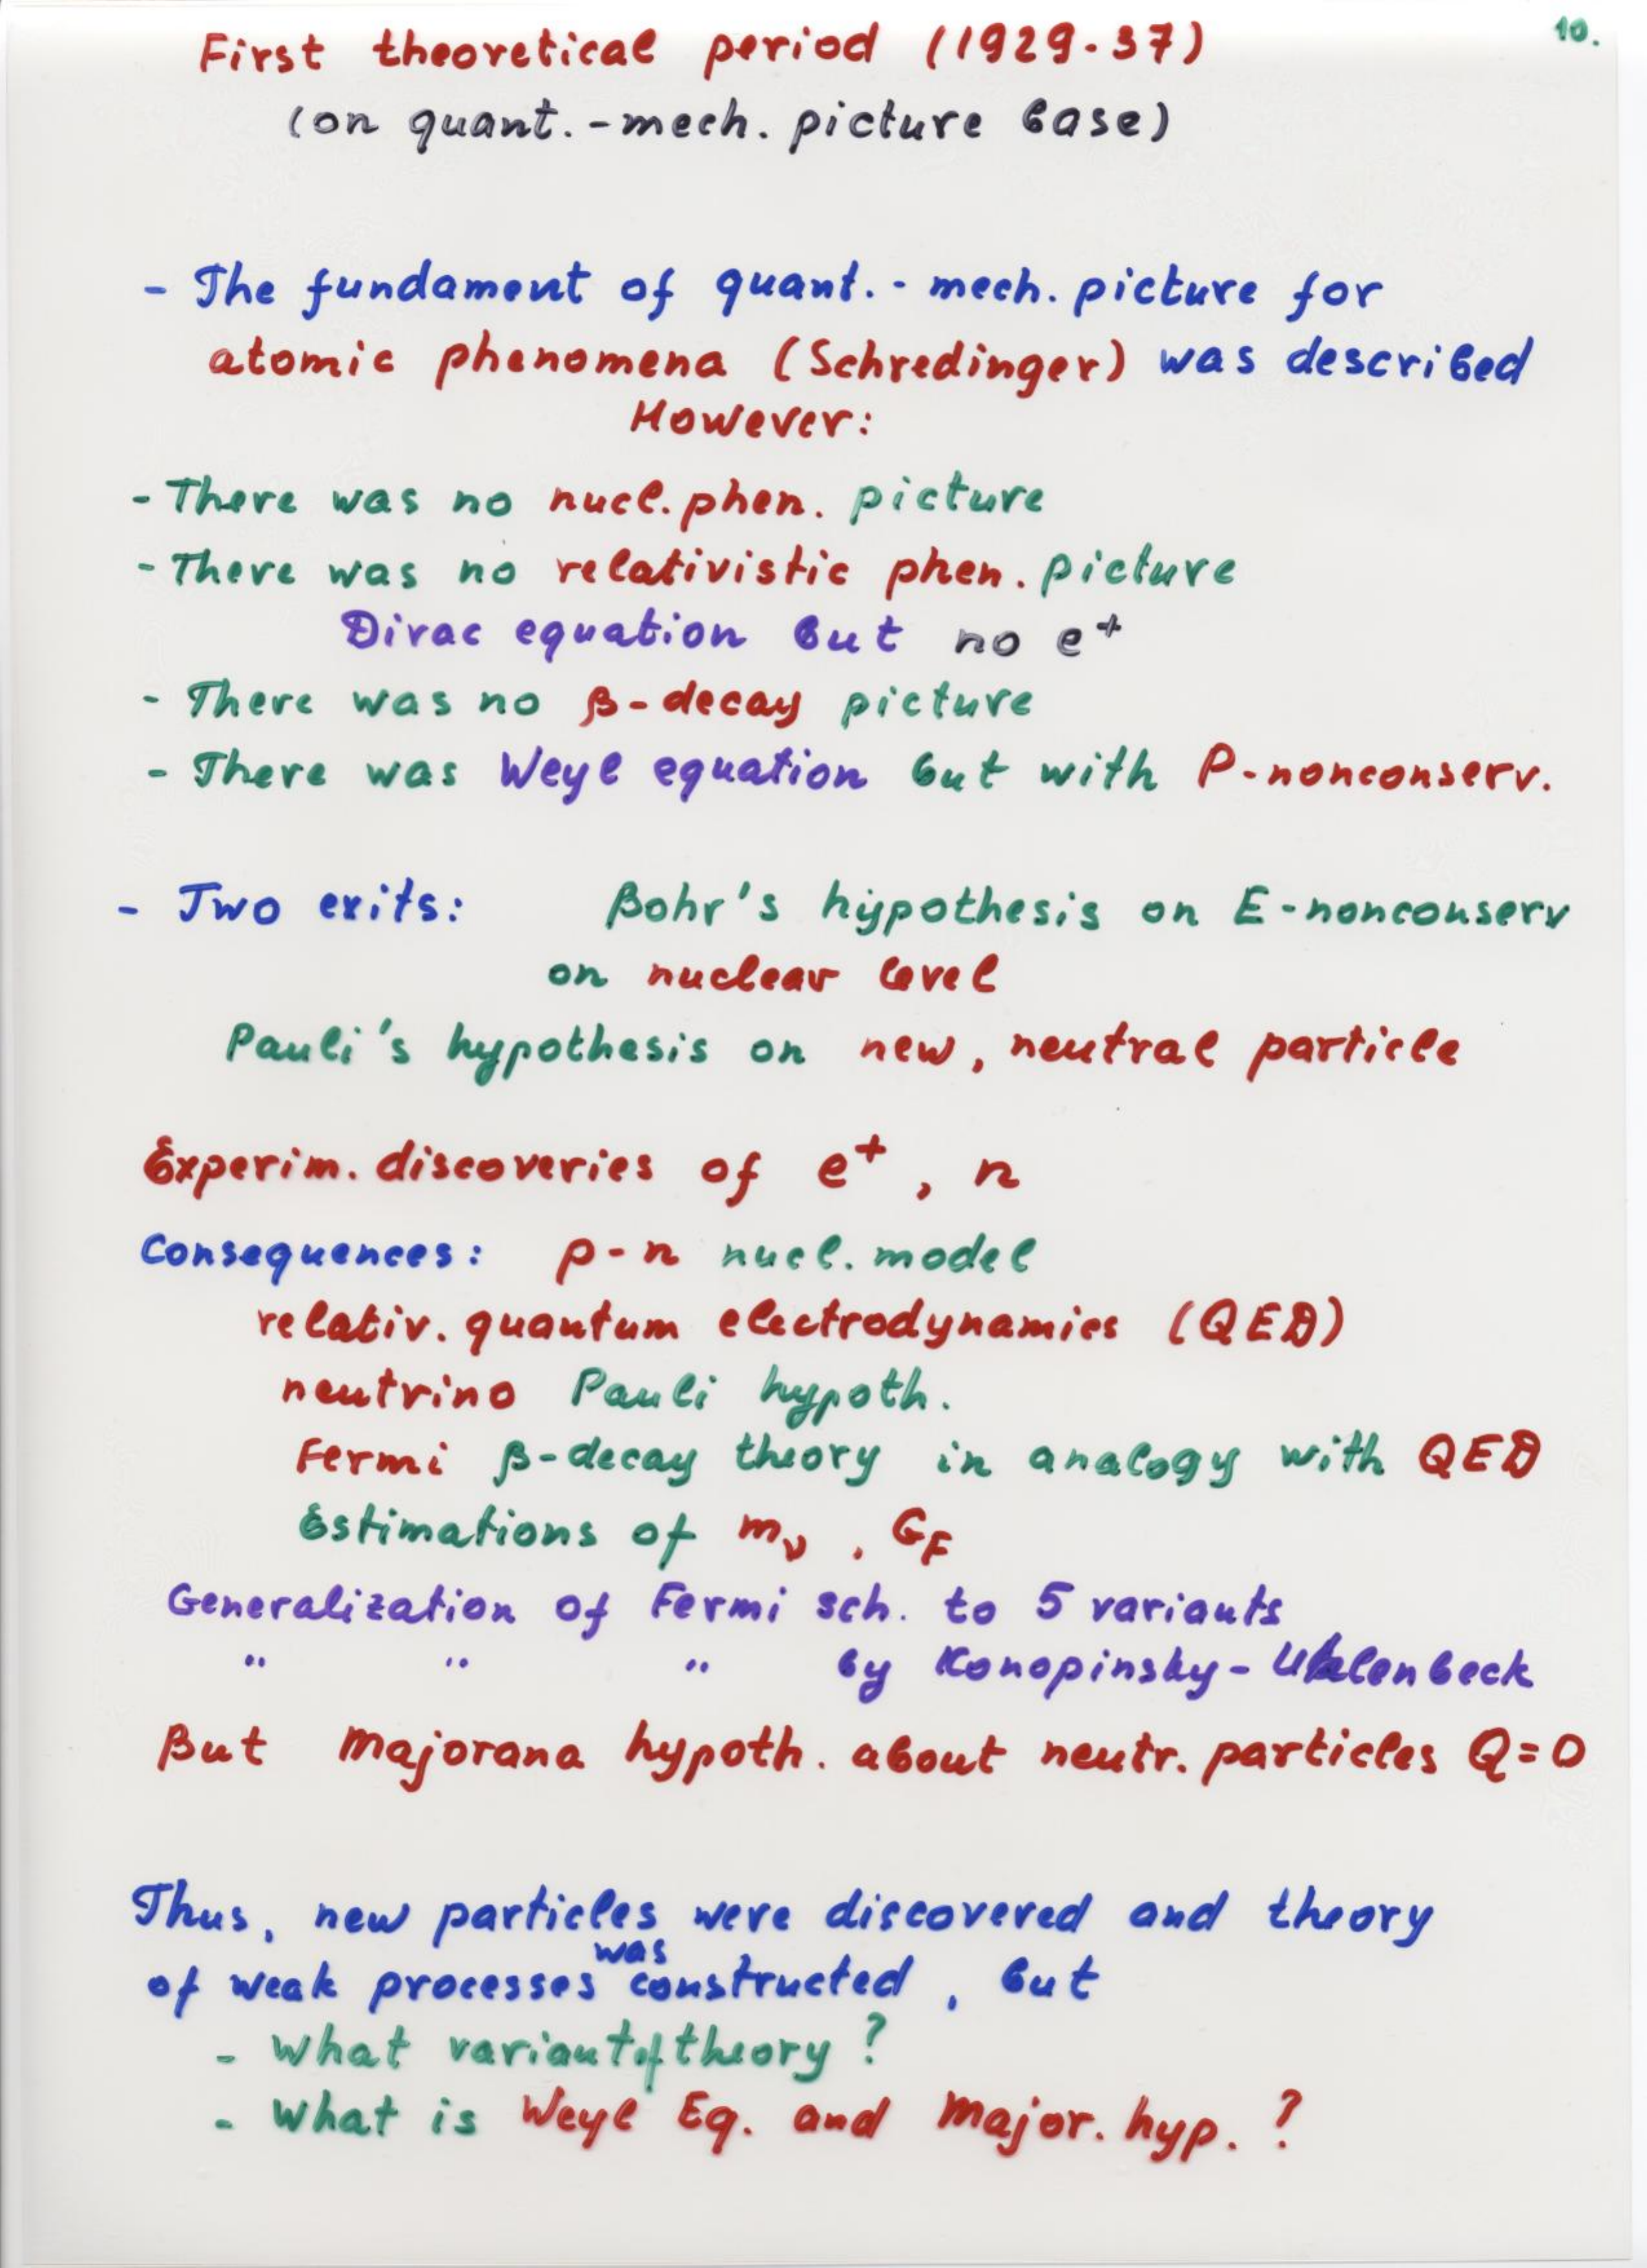 10.
First theoretical period (1929-37)
(on quant.-mech. picture base)
- The fundament of quant.-mech. picture for
atomic phenomena (Schredinger) was described
However:
- There was no nucl. phen. picture
- There was no relativistic phen. picture
Dirac equation but no e⁺
- There was no β-decay picture
- There was Weyl equation but with P-nonconserv.
- Two exits: Bohr's hypothesis on E-nonconserv
on nuclear level
Pauli's hypothesis on new, neutral particle
Experim. discoveries of e⁺, n
Consequences: p-n nucl. model
relativ. quantum electrodynamics (QED)
neutrino Pauli hypoth.
Fermi β-decay theory in analogy with QED
Estimations of m_ν, G_F
Generalization of Fermi sch. to 5 variants
" " " by Konopinsky-Uhlenbeck
But Majorana hypoth. about neutr. particles Q=0
Thus, new particles were discovered and theory
of weak processes was constructed, but
- What variant of theory?
- What is Weyl Eq. and Major. hyp.?